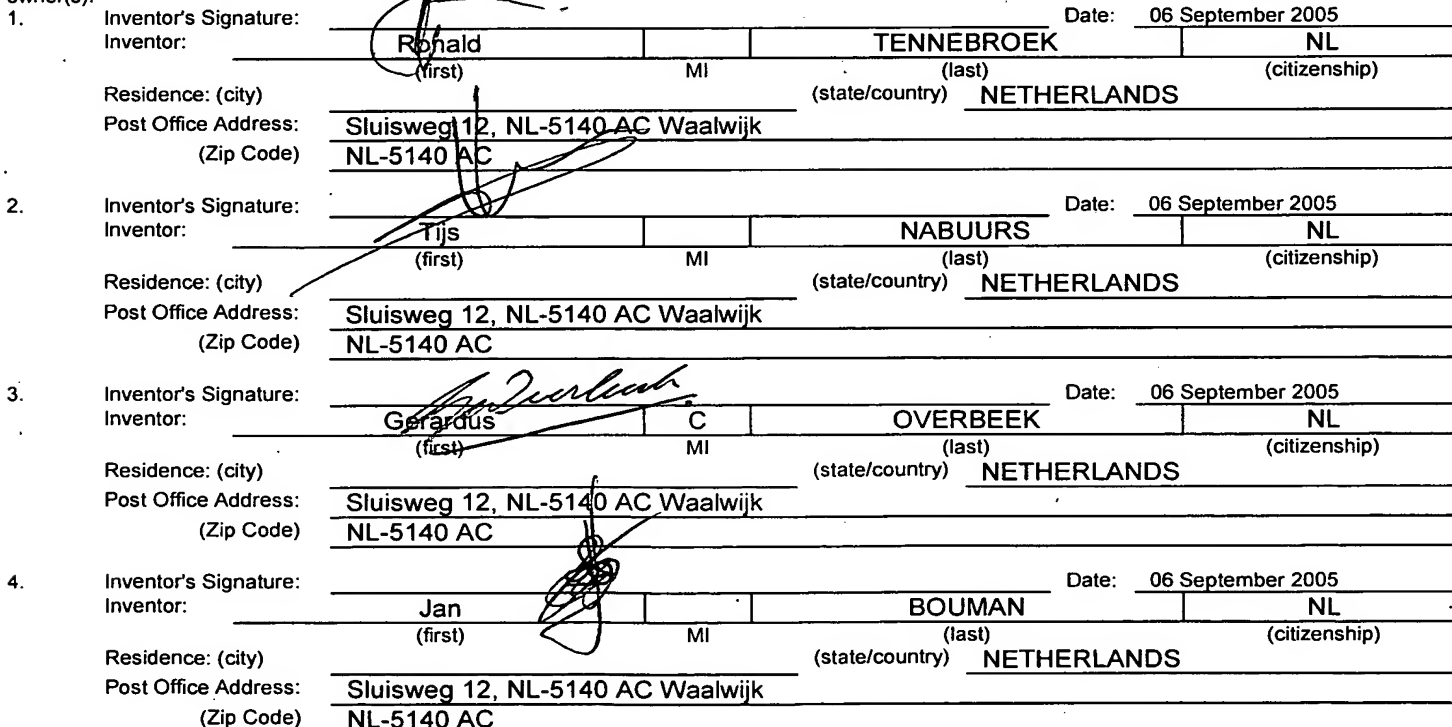 owner(s).
1. Inventor's Signature: Date: 06 September 2005
Inventor: Ronald TENNEBROEK NL
(first) MI (last) (citizenship)
Residence: (city) (state/country) NETHERLANDS
Post Office Address: Sluisweg 12, NL-5140 AC Waalwijk
(Zip Code) NL-5140 AC
2. Inventor's Signature: Date: 06 September 2005
Inventor: Tijs NABUURS NL
(first) MI (last) (citizenship)
Residence: (city) (state/country) NETHERLANDS
Post Office Address: Sluisweg 12, NL-5140 AC Waalwijk
(Zip Code) NL-5140 AC
3. Inventor's Signature: Date: 06 September 2005
Inventor: Gerardus C OVERBEEK NL
(first) MI (last) (citizenship)
Residence: (city) (state/country) NETHERLANDS
Post Office Address: Sluisweg 12, NL-5140 AC Waalwijk
(Zip Code) NL-5140 AC
4. Inventor's Signature: Date: 06 September 2005
Inventor: Jan BOUMAN NL
(first) MI (last) (citizenship)
Residence: (city) (state/country) NETHERLANDS
Post Office Address: Sluisweg 12, NL-5140 AC Waalwijk
(Zip Code) NL-5140 AC